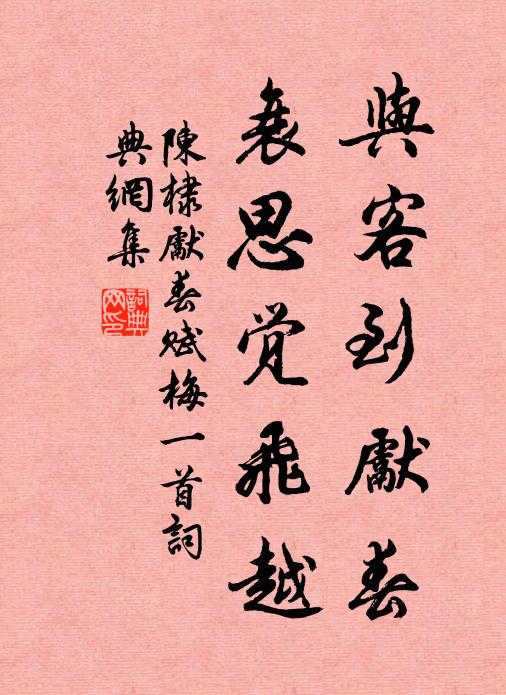 與客到獻春
衰思覺飛越
陳棣獻春賦梅一首詞
典網集
詞典網印